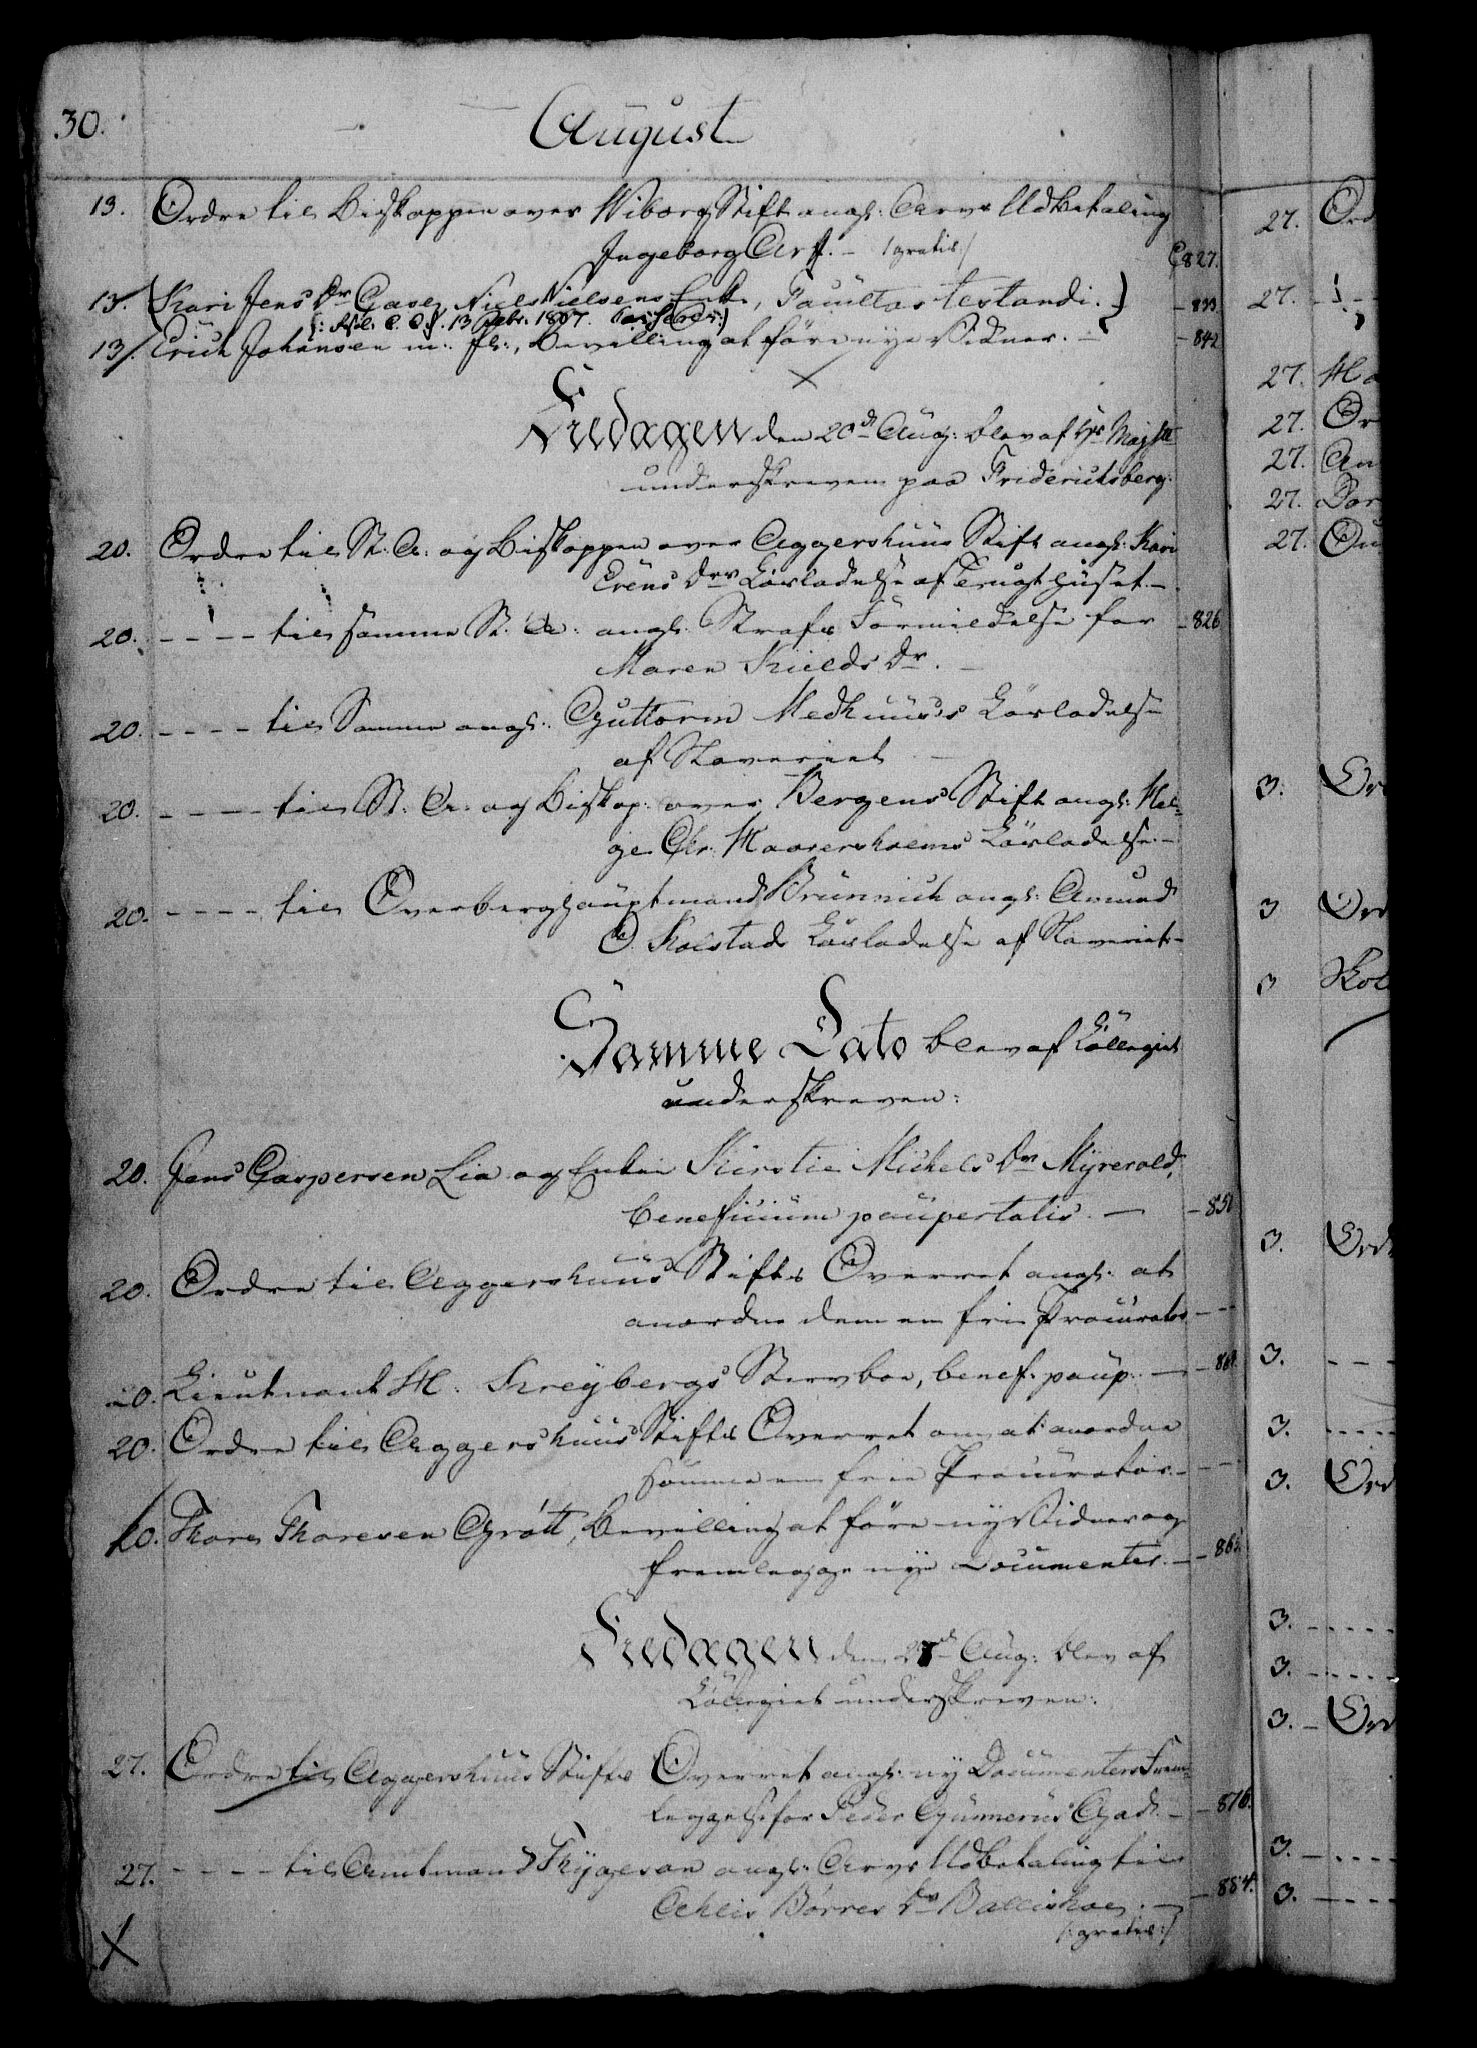 30.
August
13. Ordre til Biskoppen over Wiborg Stift angl: Arvs Udbetaling
Ingeborg Arf. - /gratis:/ C 827.
13. (Kari Jens Dr Niels Nielsens Enke, Facultas testandi.) - 833
13 1807.
13/. Erich Johansen m: fl:, Bevilling at före nye Vidner. - - 842
Fredagen den 20de Aug: blev af Hs Majst
underskreven paa Fridericksberg:
20. Ordre til St: A: og Biskoppen over Aggershuus Stift angl: Kari
Drs Lösladelse af Tugthuset. -
20. - - - - til samme St. A: angl: Strafs Formildelse for - 826
Maren Kields Dr. -
20. - - - - til Samme angl: Guttorm Medhuus's Lösladelse
af Slaveriet -
20. - - - - til St. A: og Biskop: over Bergens Stift angl: Hel-
ge Chr. Lösladelse. -
20. - - - - til Overberghauptmand Brünnich angl: Amund
O. Kolstads Lösladelse af Slaveriet -
Samme Dato blev af Collegiet
underskreven:
20. Jens Caspersen Lia og Enken Kirstie Michels Dr Myrevold,
beneficium paupertatis. - - 850
20. Ordre til Aggershuus Stifts Overret angl: at
anordne dem en frie Procurator - - -
20. Lieutnant H. Kreybergs Stervboe, benef: paup: - - 861.
20. Ordre til Aggershuus Stifts Overret om at anordne
samme en frie Procurator. - - -
20. Thore Thoresen Grött, Bevilling at före ny Vidner og
fremlegge nye Documenter. - - 863
Fredagen den 27de Aug: blev af
Collegiet underskreven:
27. Ordre til Aggershuus Stifts Overret angl: ny Documenters Frem-
leggelse for Peder Gunnerus Gad. - - 876.
27. - - - - til Amtmand Thygeson angl: Arvs Udbetaling til
Börres Dr - - 884.
/:gratis:/
X
27. Ord
27.
27.
27. Or
27. An
27.
27.
3. Ord
3 Ord
3
3. Ord
3. - - -
3. - - - -
3. Ord
3. - - - -
3. - - - -
3. - Ord
3. - - - -
3. - - - -